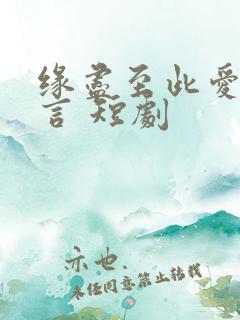 缘尽至此爱
言 短劇
亦也.
未任同意禁止转载